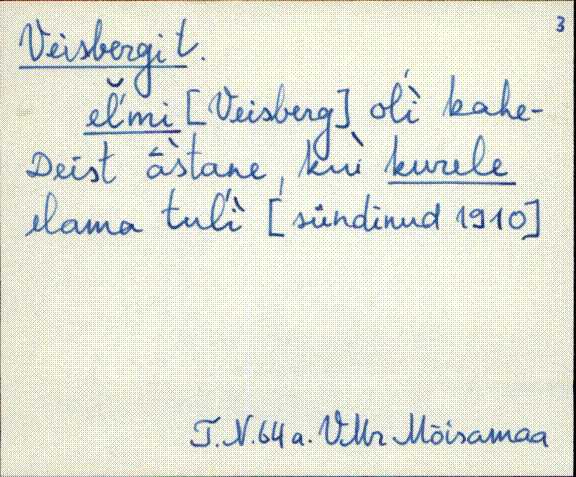 3
Veisbergi t.
el̆'mi [Veisberg] ol'ì kahe-
Deist âstane, kuì kurele
elama tul'ì [sündinud 1910]
T.N.64a. VMr Mõisamaa